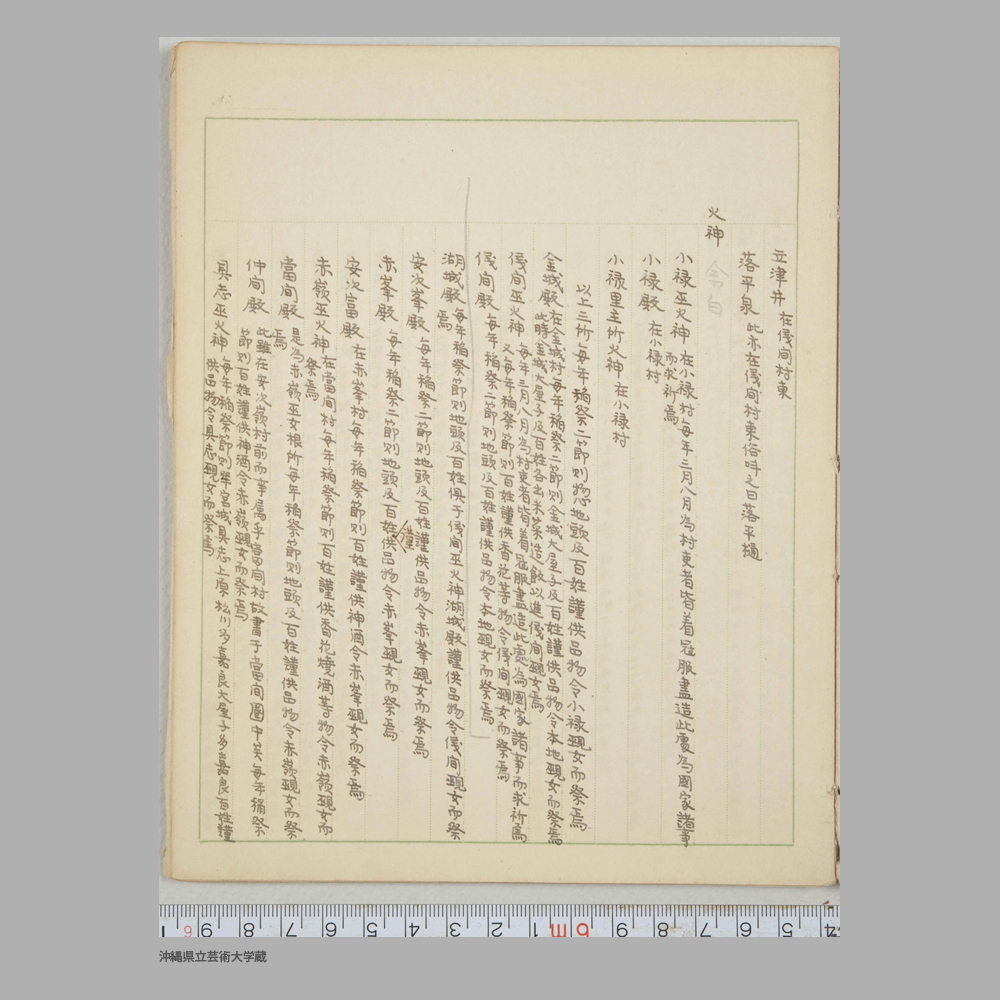 立津井 在儀間村東
落平泉 此亦在儀間村東俗叫之曰落平樋
火神 余白
小禄巫火神 在小禄村毎年三月八月為村吏者皆着冠服盡造此處為國家諸事
而求祈焉
小禄殿 在小禄村
小禄里主所火神 在小禄村
以上三所毎年稲祭二節則惣地頭及百姓謹供品物令小禄覡女而祭焉
金城殿 在金城村毎年稲祭二節則金城大屋子及百姓謹供品物令本地覡女而祭焉
此時金城大屋子及百姓各出米菜造飯以進儀間覡女焉
儀間巫火神 毎年三月八月為村吏者皆着冠服盡造此處為國家諸事而求祈焉
又毎年稲祭節則百姓謹供香花等物令儀間覡女而祭焉
儀間殿 毎年稲祭二節則地頭及百姓謹供品物令本地覡女而祭焉
湖城殿 毎年稲祭節則地頭及百姓俱于儀間巫火神湖城殿謹供品物令儀間覡女而祭
焉
安次峯殿 毎年稲祭二節則地頭及百姓謹供品物令赤峯覡女而祭焉
赤峯殿 毎年稲祭二節則地頭及百姓謹供品物令赤峯覡女而祭焉
安次富殿 在赤峯村毎年稲祭節則百姓謹供神酒令赤峯覡女而祭焉
赤嶺巫火神 在當間村毎年稲祭節則百姓謹供香花焼酒等物令赤嶺覡女而
祭焉
當間殿 是為赤嶺巫女根所毎年稲祭節則地頭及百姓謹供品物令赤嶺覡女而祭
焉
仲間殿 此雖在安次嶺村前而事属乎當間村故書于當間圖中矣毎年稲祭
節則百姓謹供神酒令赤嶺覡女而祭焉
具志巫火神 毎年稲祭節則翠宮城具志上原松川多嘉良大屋子多嘉良百姓謹
供品物令具志覡女而祭焉
沖縄県立芸術大学蔵